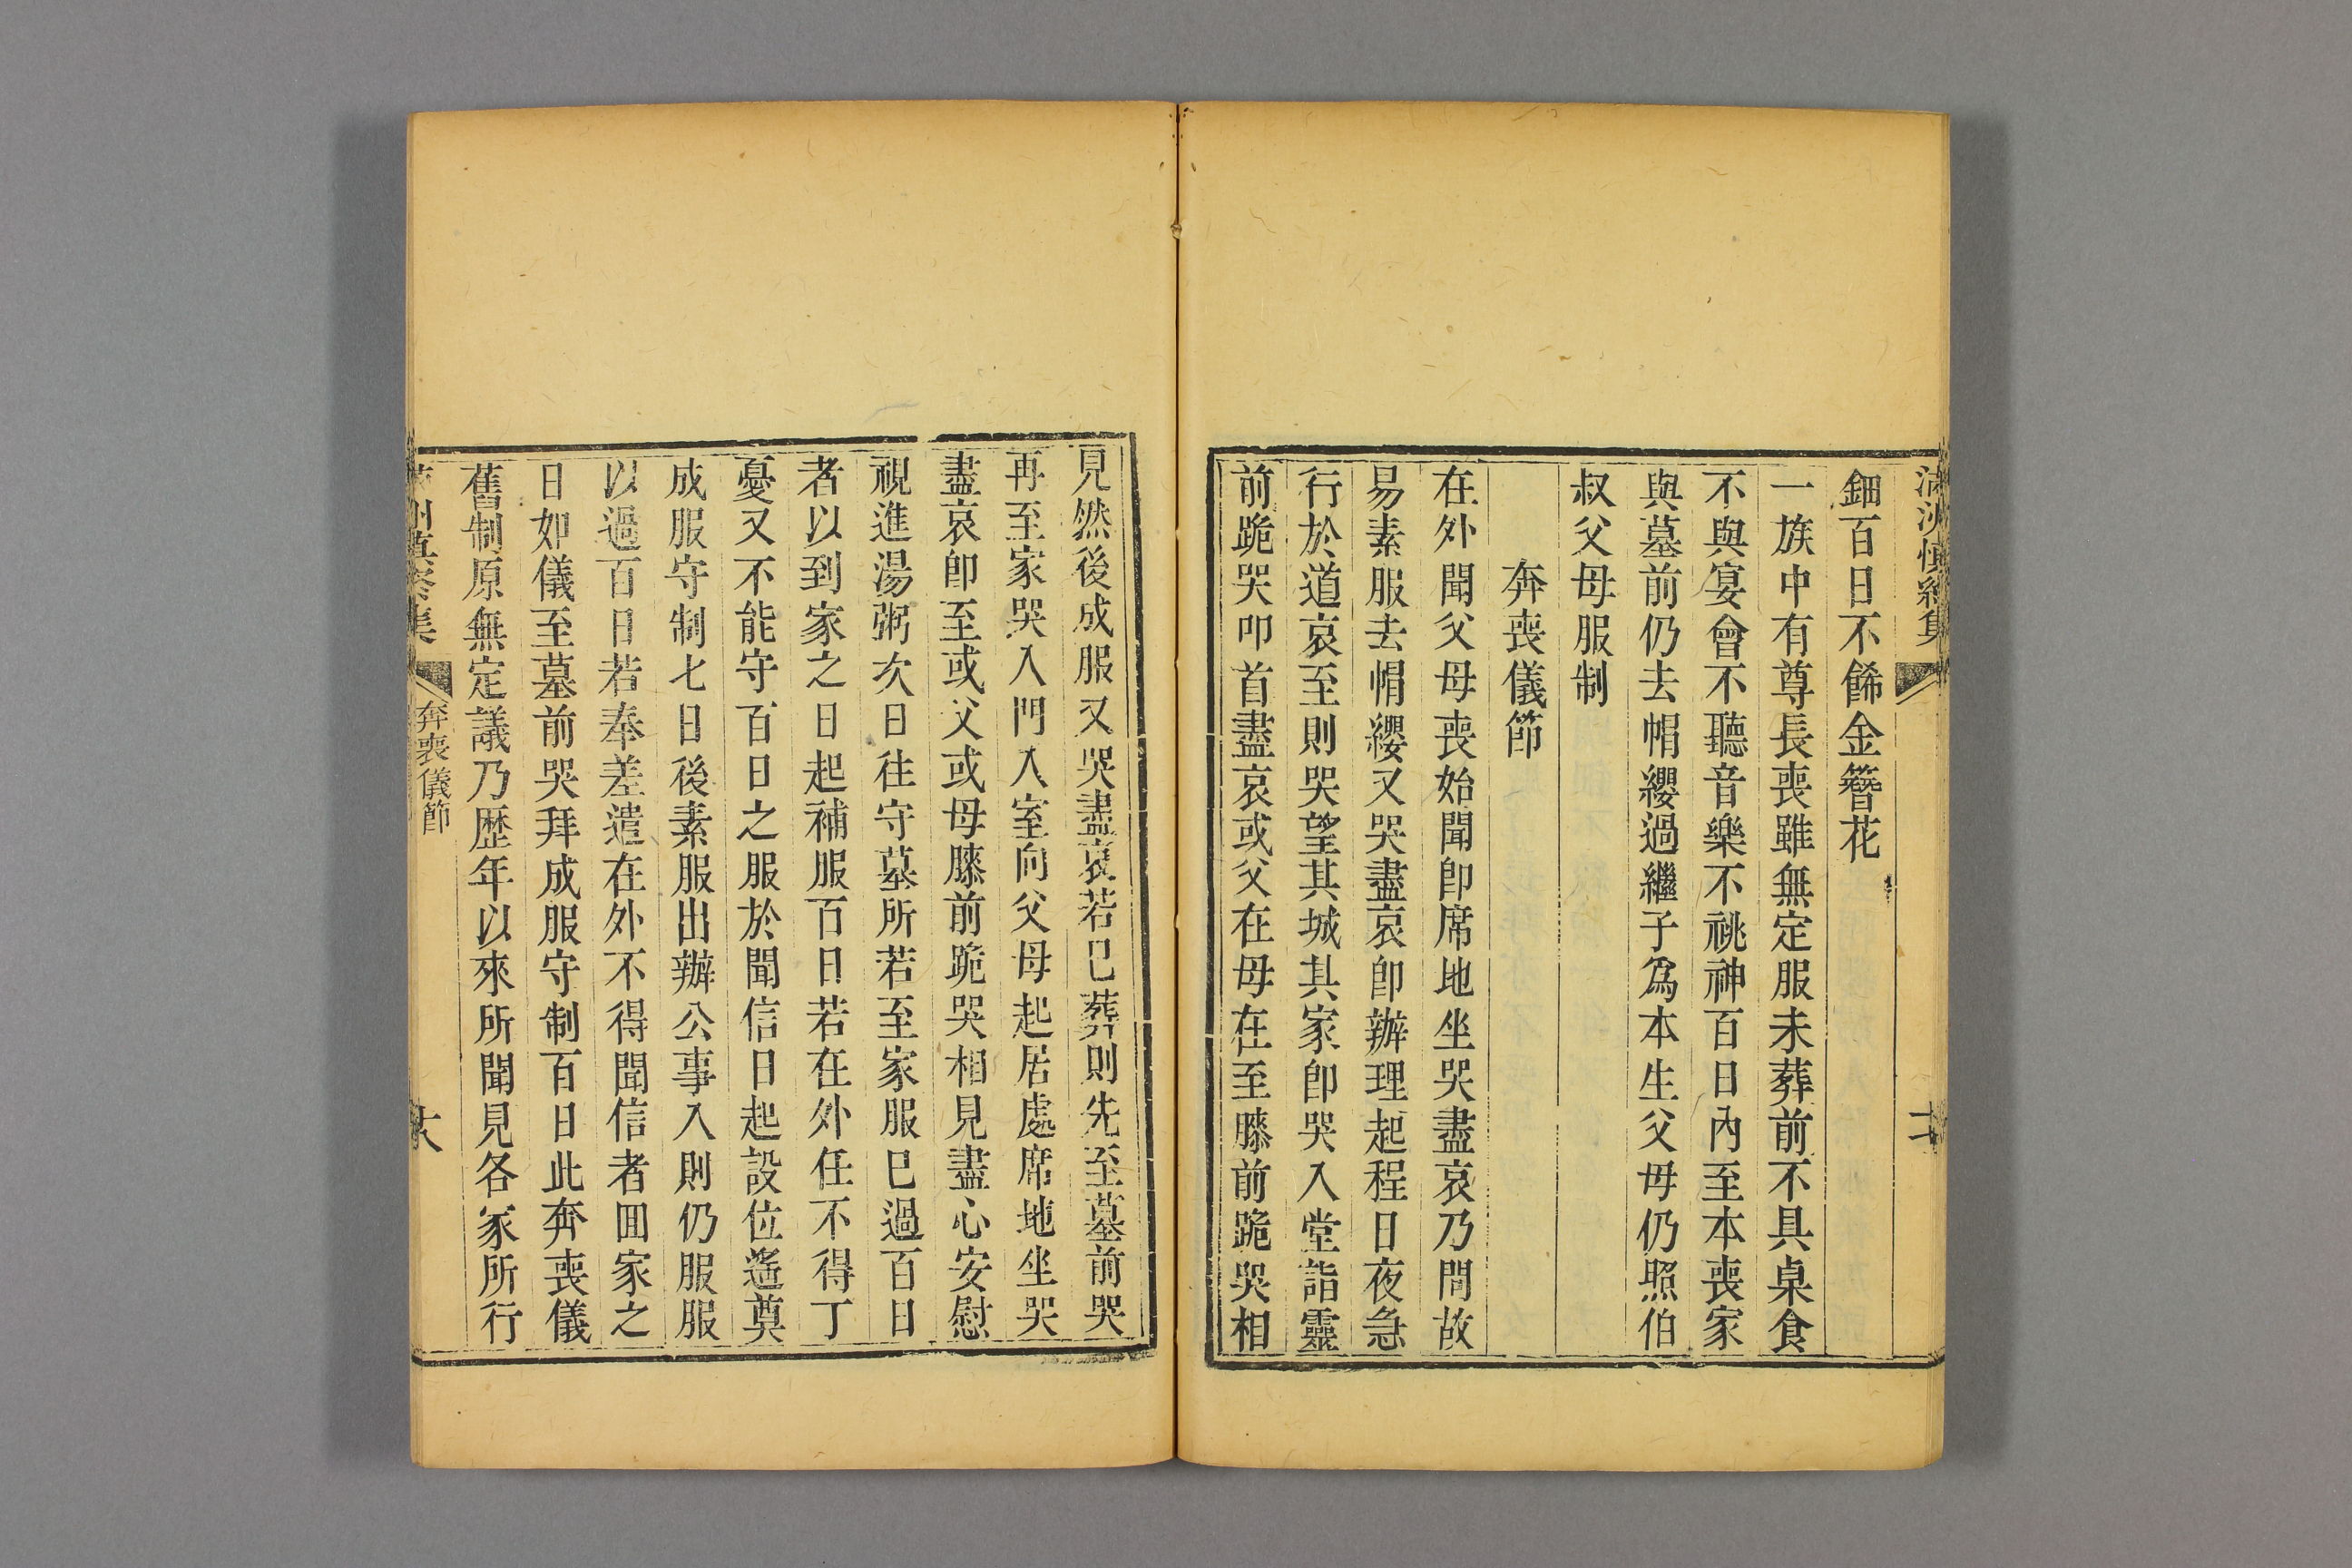 鈿百日不餙金簪花
一族中有尊長喪雖無定服未葬前不具桌食
不與宴會不聽音樂不祧神百日內至本喪家
與墓前仍去帽纓過繼子為本生父母仍照伯
叔父母服制
奔喪儀節
在外聞父母喪始聞卽席地坐哭盡哀乃問故
易素服去帽纓又哭盡哀卽辦理起程日夜急
行於道哀至則哭望其城其家卽哭入堂詣靈
前跪哭叩首盡哀或父在母在至膝前跪哭相
見然後成服又哭盡哀若巳葬則先至墓前哭
再至家哭入門入室向父母起居處席地坐哭
盡哀卽至或父或母膝前跪哭相見盡心安慰
視進湯粥次日往守墓所若至家服巳過百日
者以到家之日起補服百日若在外任不得丁
憂又不能守百日之服於聞信日起設位遙奠
成服守制七日後素服出辦公事入則仍服服
以過百日若奉差遣在外不得聞信者囬家之
日如儀至墓前哭拜成服守制百日此奔喪儀
舊制原無定議乃歷年以來所聞見各家所行
奔喪儀節